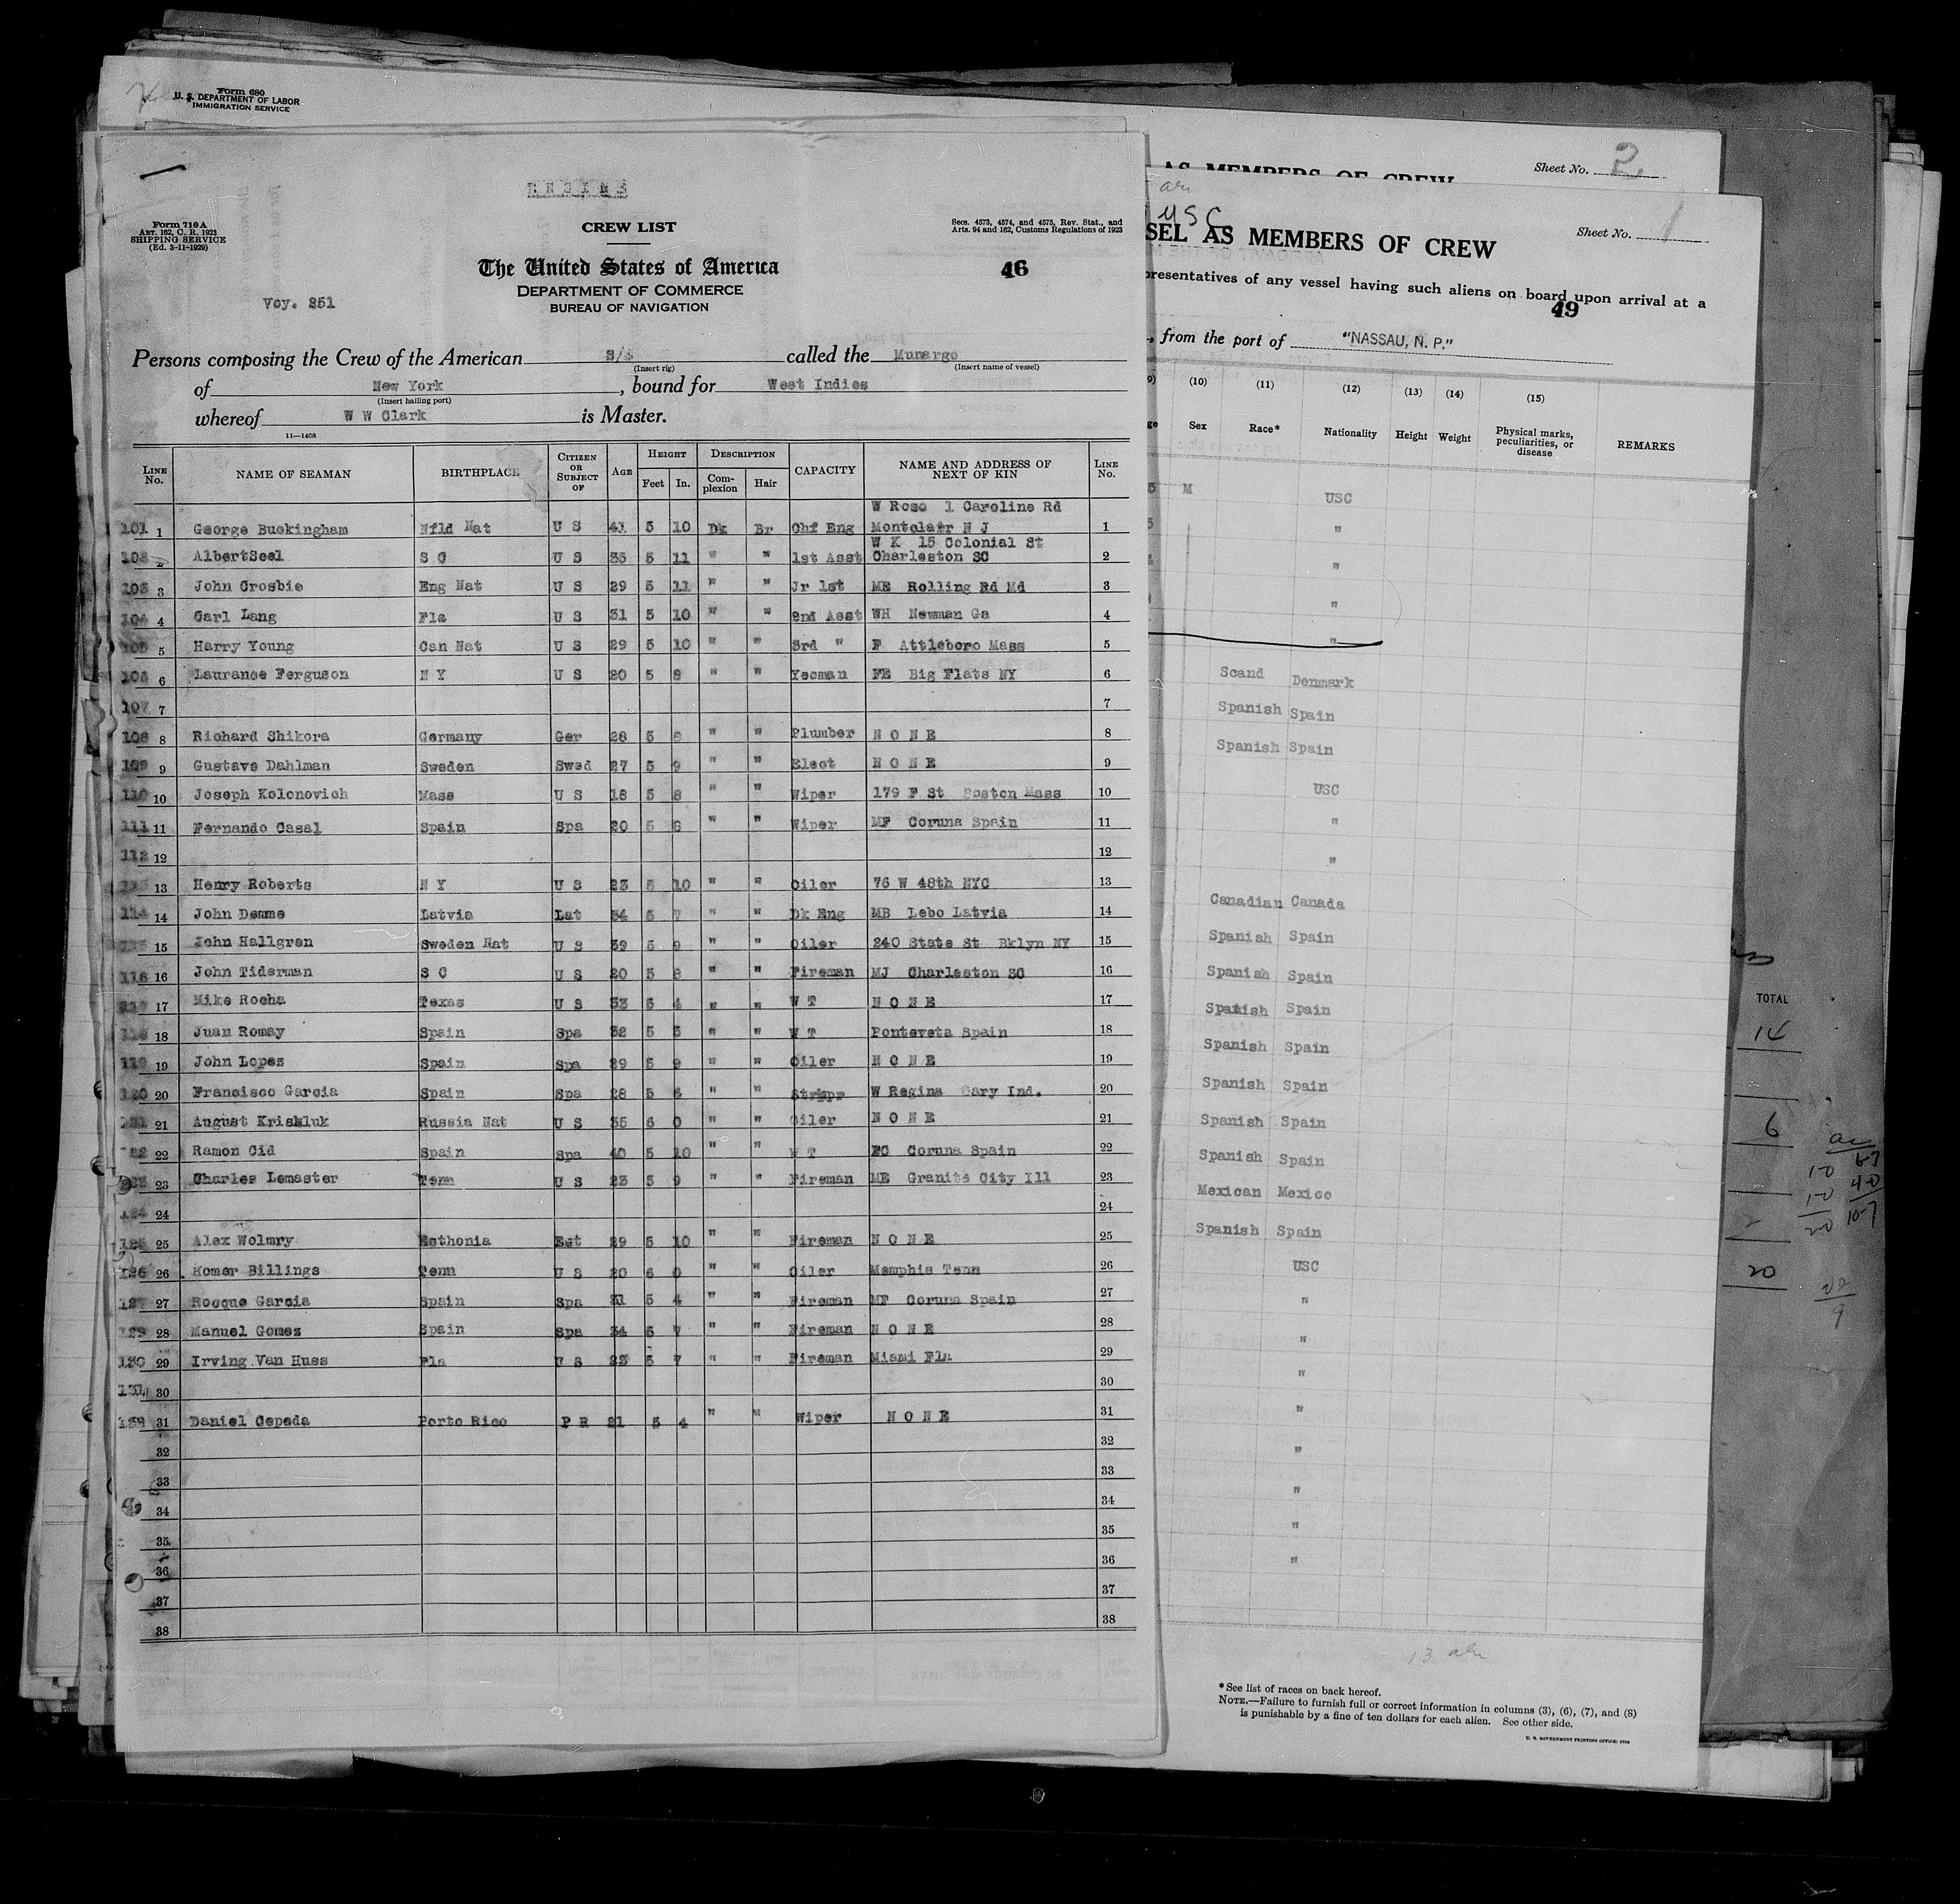 Form 680
U. S. DEPARTMENT OF LABOR
IMMIGRATION SERVICE
Sheet No. 2
AS MEMBERS OF CREW
USC
SEL AS MEMBERS OF CREW
Sheet No. 1
presentatives of any vessel having such aliens on board upon arrival at a
49
, from the port of "NASSAU, N. P."
(10) (11) (12) (13) (14) (15)
Sex Race* Nationality Height Weight Physical marks, peculiarities, or disease REMARKS
5 M USC
"
"
"
"
Scand Denmark
Spanish Spain
Spanish Spain
USC
"
"
Canadian Canada
Spanish Spain
Spanish Spain
Spanish Spain
Spanish Spain
Spanish Spain
Spanish Spain
Spanish Spain
Mexican Mexico
Spanish Spain
USC
"
"
"
"
"
"
"
"
*See list of races on back hereof.
NOTE.—Failure to furnish full or correct information in columns (3), (6), (7), and (8)
is punishable by a fine of ten dollars for each alien. See other side.
TOTAL
14
6
2
20
ENGINE
Form 710 A
ART. 162, C. R. 1923
SHIPPING SERVICE
(Ed. 3-11-1929)
CREW LIST
Secs. 4573, 4574, and 4575, Rev. Stat., and
Arts. 94 and 162, Customs Regulations of 1923
The United States of America
46
DEPARTMENT OF COMMERCE
BUREAU OF NAVIGATION
Voy. 251
Persons composing the Crew of the American S/S called the Munargo
(Insert rig) (Insert name of vessel)
of New York, bound for West Indies
(Insert hailing port)
whereof W W Clark is Master.
11—1408
LINE No. NAME OF SEAMAN BIRTHPLACE CITIZEN OR SUBJECT OF AGE HEIGHT Feet In. DESCRIPTION Complexion Hair CAPACITY NAME AND ADDRESS OF NEXT OF KIN LINE No.
W Rose 1 Caroline Rd
101 1 George Buckingham Nfld Nat U S 41 5 10 Dk Br Chf Eng Montclair N J 1
W K 15 Colonial St
102 2 AlbertSeel S C U S 35 5 11 " " 1st Asst Charleston SC 2
103 3 John Crosbie Eng Nat U S 29 5 11 " " Jr 1st ME Rolling Rd Md 3
104 4 Carl Lang Fla U S 31 5 10 " " 2nd Asst WH Newman Ga 4
105 5 Harry Young Can Nat U S 29 5 10 " " 3rd " F Attleboro Mass 5
106 6 Laurance Ferguson N Y U S 20 5 8 " " Yeoman FE Big Flats NY 6
107 7 7
108 8 Richard Shikora Germany Ger 28 5 8 " " Plumber N O N E 8
109 9 Gustave Dahlman Sweden Swed 27 5 9 " " Elect N O N E 9
110 10 Joseph Kolonovich Mass U S 18 5 8 " " Wiper 179 F St Boston Mass 10
111 11 Fernando Casal Spain Spa 20 5 6 " " Wiper MF Coruna Spain 11
112 12 12
113 13 Henry Roberts N Y U S 23 5 10 " " Oiler 76 W 48th NYC 13
114 14 John Demme Latvia Lat 34 5 7 " " Dk Eng MB Lebo Latvia 14
115 15 John Hallgren Sweden Nat U S 39 5 9 " " Oiler 240 State St Bklyn NY 15
116 16 John Tiderman S C U S 20 5 8 " " Fireman MJ Charleston SC 16
117 17 Mike Rocha Texas U S 33 5 4 " " W T N O N E 17
118 18 Juan Romay Spain Spa 32 5 3 " " W T Ponteveta Spain 18
119 19 John Lopez Spain Spa 29 5 9 " " Oiler N O N E 19
120 20 Francisco Garcia Spain Spa 28 5 6 " " W Regina Gary Ind. 20
121 21 August Krishluk Russia Nat U S 35 6 0 " " Oiler N O N E 21
122 22 Ramon Cid Spain Spa 40 5 10 " " W T FC Coruna Spain 22
123 23 Charles Lemaster Tenn U S 23 5 9 " " Fireman ME Granite City Ill 23
124 24 24
125 25 Alex Wolmry Esthonia Est 29 5 10 " " Fireman N O N E 25
126 26 Homer Billings Tenn U S 20 6 0 " " Oiler Memphis Tenn 26
127 27 Rocque Garcia Spain Spa 31 5 4 " " Fireman MF Coruna Spain 27
129 28 Manuel Gomez Spain Spa 34 5 7 " " Fireman N O N E 28
130 29 Irving Van Huss Fla U S 23 5 7 " " Fireman Miami Fla 29
131 30 30
132 31 Daniel Cepeda Porto Rico P R 21 5 4 " " Wiper N O N E 31
32 32
33 33
34 34
35 35
36 36
37 37
38 38